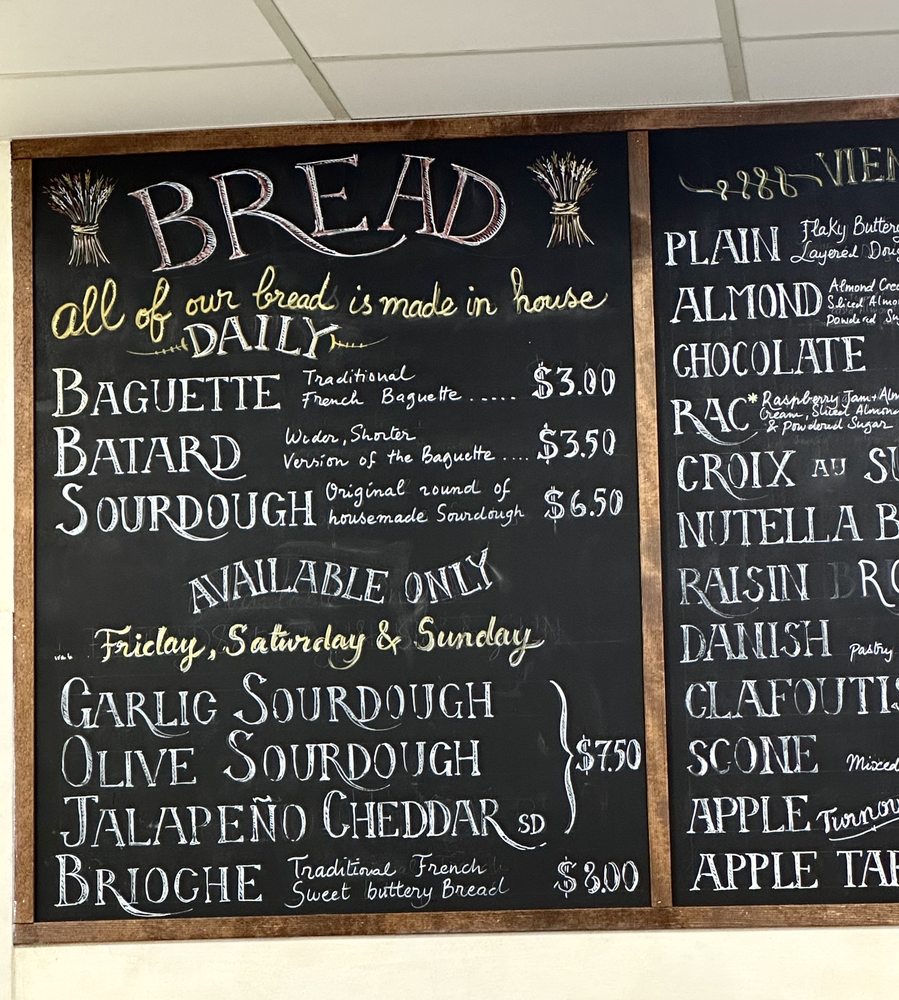 BREAD
all of our bread is made in house
DAILY
BAGUETTE Traditional French Baguette ..... $3.00
BATARD Wider, Shorter Version of the Baguette .... $3.50
SOURDOUGH Original round of housemade Sourdough $6.50
AVAILABLE ONLY
Friday, Saturday & Sunday
GARLIC SOURDOUGH
OLIVE SOURDOUGH
JALAPEÑO CHEDDAR SD
$7.50
BRIOCHE Traditional French Sweet buttery Bread
VIEN
PLAIN Flaky Buttery Layered Doug
ALMOND Almond Crea Sliced Almo Powdered Su
CHOCOLATE
RAC* Raspberry Jam + Alm Cream, Sliced Almond & Powdered Sugar
CROIX AU SU
NUTELLA B
RAISIN BRO
DANISH Pastry
CLAFOUTIS
SCONE Mixed
APPLE Turnov
APPLE TAR